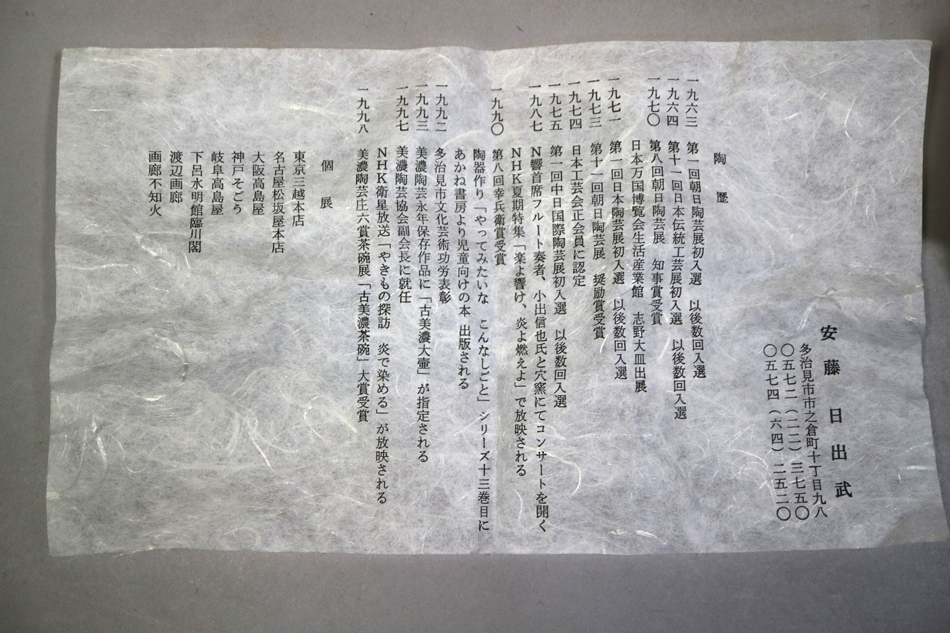 安藤日出武
多治見市市之倉町十丁目九八
〇五七二(二二)三七五〇
〇五七四(六四)二五二〇
陶歴
一九六三 第一回朝日陶芸展初入選 以後数回入選
一九六四 第十一回日本伝統工芸展初入選 以後数回入選
一九七〇 第八回朝日陶芸展 知事賞受賞
日本万国博覧会生活産業館 志野大皿出展
一九七一 第一回日本陶芸展初入選 以後数回入選
一九七三 第十一回朝日陶芸展 奨励賞受賞
一九七四 日本工芸会正会員に認定
一九七五 第一回中日国際陶芸展初入選 以後数回入選
一九八七 N響首席フルート奏者、小出信也氏と穴窯にてコンサートを開く
NHK夏期特集「楽よ響け、炎よ燃えよ」で放映される
一九九〇 第八回幸兵衛賞受賞
陶器作り「やってみたいな こんなしごと」シリーズ十三巻目に
あかね書房より児童向けの本 出版される
一九九二 多治見市文化芸術功労表彰
一九九三 美濃陶芸永年保存作品に「古美濃大壷」が指定される
一九九七 美濃陶芸協会副会長に就任
NHK衛星放送「やきもの探訪 炎で染める」が放映される
一九九八 美濃陶芸庄六賞茶碗展「古美濃茶碗」大賞受賞
個展
東京三越本店
名古屋松坂屋本店
大阪高島屋
神戸そごう
岐阜高島屋
下呂水明館臨川閣
渡辺画廊
画廊不知火